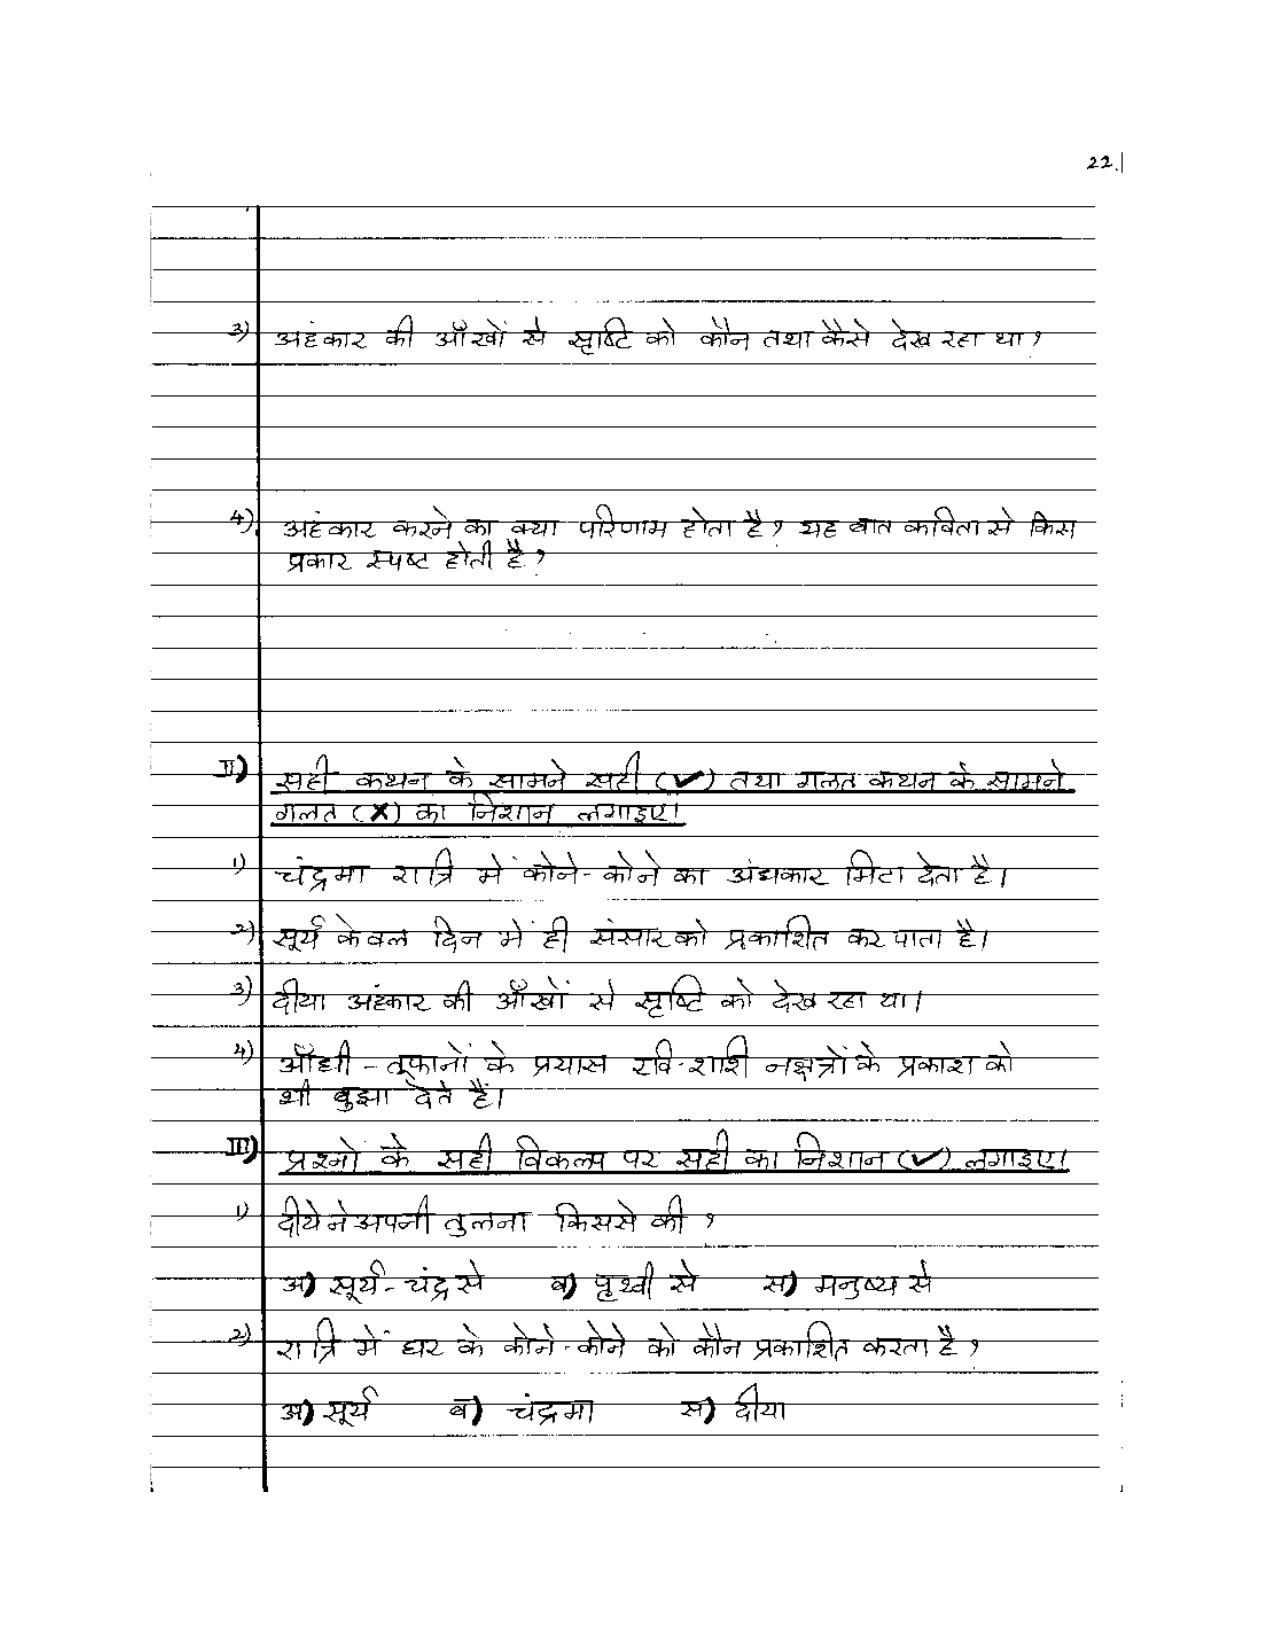 22.
3) अहंकार की आँखों से सृष्टि को कौन तथा कैसे देख रहा था?
4) अहंकार करने का क्या परिणाम होता है? यह बात कविता से किस
प्रकार स्पष्ट होती है?
II) सही कथन के सामने सही (✓) तथा गलत कथन के सामने
गलत (X) का निशान लगाइए।
1) चंद्रमा रात्रि में कोने-कोने का अंधकार मिटा देता है।
2) सूर्य केवल दिन में ही संसार को प्रकाशित कर पाता है।
3) दीया अहंकार की आँखों से सृष्टि को देख रहा था।
4) आँधी - तूफानों के प्रयास रवि-शशि नक्षत्रों के प्रकाश को
भी बुझा देते हैं।
III) प्रश्नों के सही विकल्प पर सही का निशान (✓) लगाइए।
1) दीये ने अपनी तुलना किससे की?
अ) सूर्य-चंद्र से ब) पृथ्वी से स) मनुष्य से
2) रात्रि में घर के कोने-कोने को कौन प्रकाशित करता है?
अ) सूर्य ब) चंद्रमा स) दीया